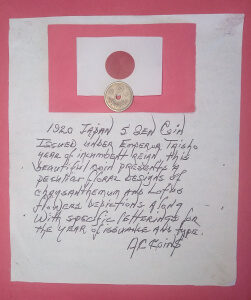 1920 Japan 5 Sen Coin
Issued under Emperor Taisho
year of incumbent reign. This
beautiful coin presents a
peculiar floral designs of
chrysanthemum and Lotus
flowers depictions along
with specific letterings for
the year of issuance and type.